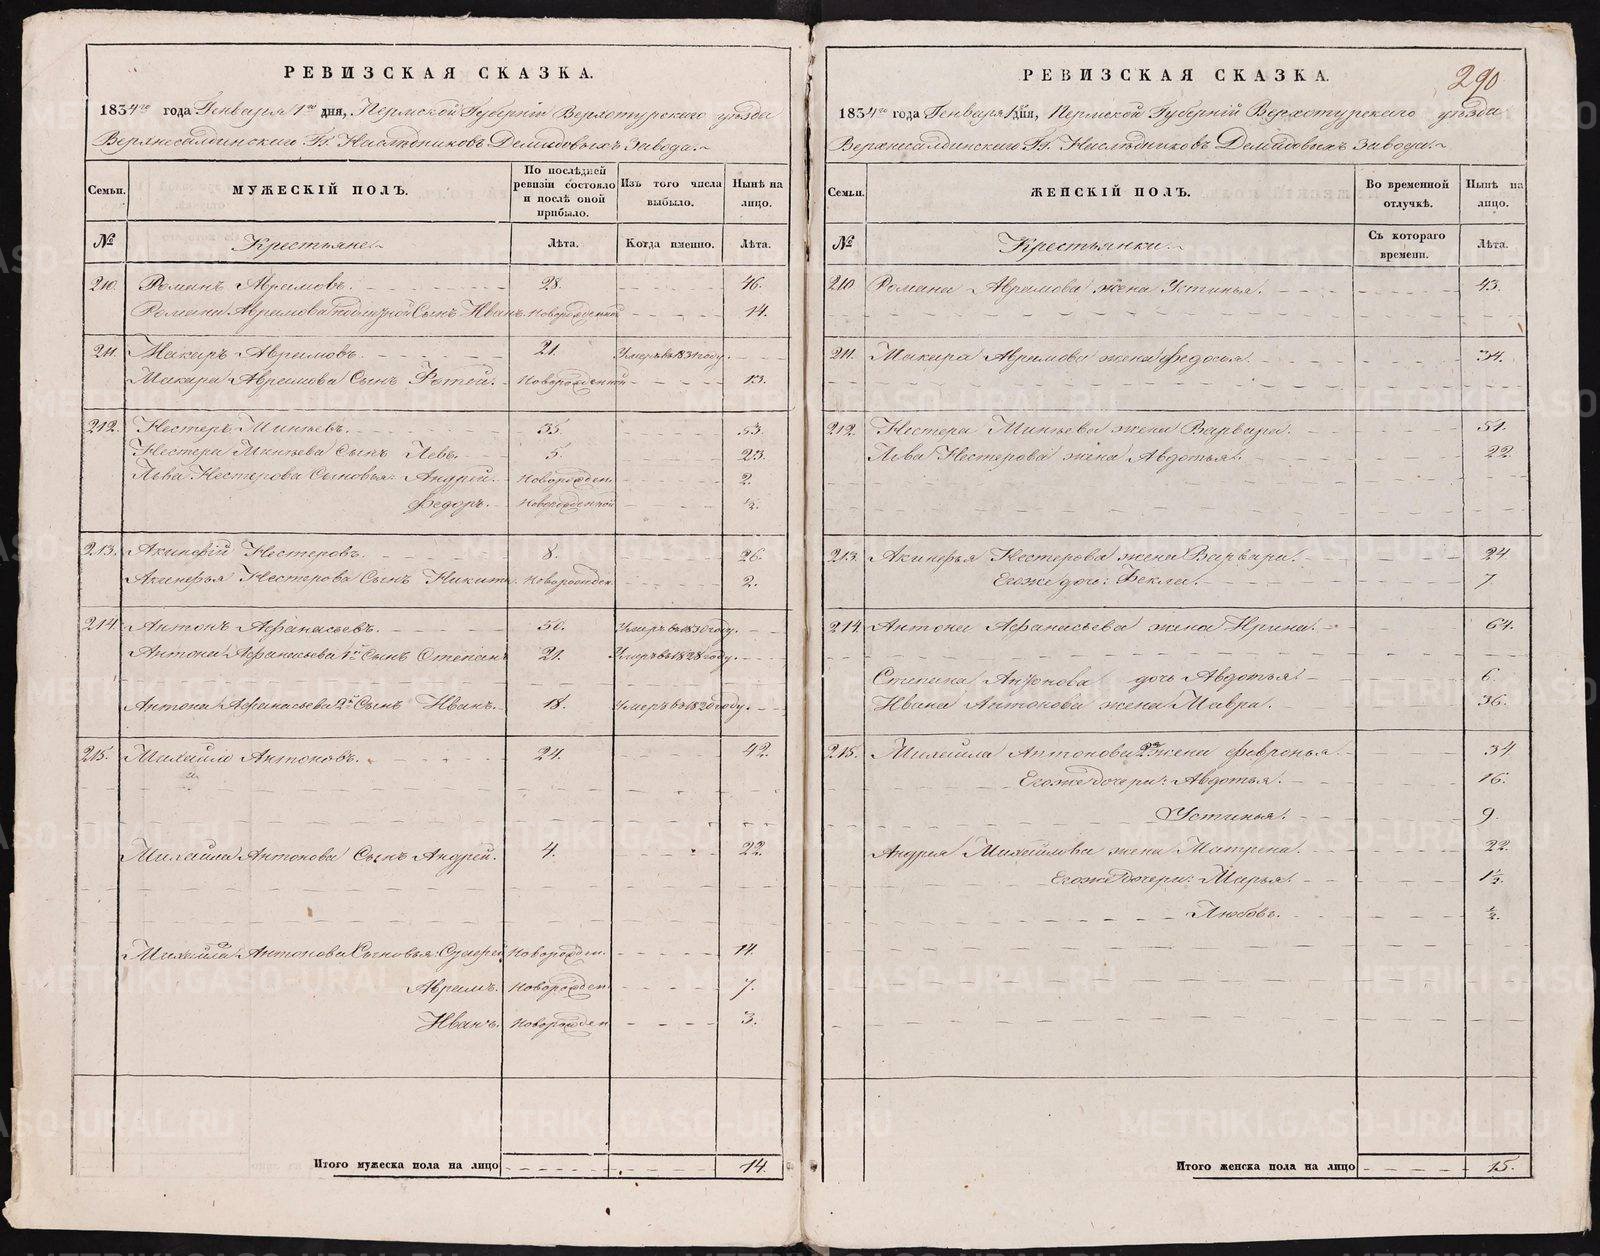 РЕВИЗСКАЯ СКАЗКА.
1834го года Генваря 1го дня, Пермской Губернiи Верхотурскаго уѣзда
Верхнесалдинскаго Гг. Наслѣдниковъ Демидовыхъ завода.
Семьи.
МУЖЕСКIЙ ПОЛЪ.
По послѣдней ревизiи состояло и послѣ оной прибыло.
Изъ того числа выбыло.
Нынѣ на лицо.
№
Крестьяне.
Лѣта.
Когда именно.
Лѣта.
210. Романъ Аврамовъ. 28. 46.
Романа Аврамова Сынъ Иванъ. Новорожденной 14.
211. Макаръ Аврамовъ. 21. Умеръ въ 1831 году.
Макара Аврамова Сынъ Фотей. Новорожденной 13.
212. Нестеръ Минѣевъ. 35. 53.
Нестера Минѣева Сынъ Левъ. 5. 23.
Льва Нестерова Сыновья: Андрей. Новорожден. 2.
Федоръ. Новорожденной ½.
213. Акинфiй Нестеровъ. 8. 26.
Акинфья Нестерова Сынъ Никита. Новорожден. 2.
214. Антонъ Афанасьевъ. 50. Умеръ въ 1830 году.
Антона Афанасьева 1й Сынъ Степанъ 21. Умеръ въ 1828 году.
Антона Афанасьева 2й Сынъ Иванъ. 18. Умеръ въ 1820 году.
215. Михайла Антоновъ. 24. 42.
Михайла Антонова Сынъ Андрей. 4. 22.
Михайла Антонова Сыновья: Новорожден. 14.
Аврамъ. Новорожден 7.
Иванъ. Новорожден 3.
Итого мужеска пола на лицо 14.
290
РЕВИЗСКАЯ СКАЗКА.
1834го года Генваря 1го дня, Пермской Губернiй Верхотурскаго уѣзда
Верхнесалдинскаго Гг. Наслѣдниковъ Демидовыхъ завода.
Семьи.
ЖЕНСКIЙ ПОЛЪ.
Во временной отлучкѣ.
Нынѣ на лицо.
№
Крестьянки.
Съ котораго времени.
Лѣта.
210 Романа Аврамова жена Устинья. 43.
211. Макара Аврамова жена Федосья. 34.
212. Нестера Минѣева жена Варвара. 51.
Льва Нестерова жена Авдотья. 22.
213. Акинфья Нестерова жена Варвара. 24.
Егоже дочь: Фекла. 7
214. Антона Афанасьева жена Ирина. 64.
Степана Антонова дочь Авдотья. 6.
Ивана Антонова жена Мавра. 36.
215. Михайла Антонова 2я жена Февронья. 34
Егоже дочери: Авдотья. 16.
Устинья. 9.
Андрея Михайлова жена Матрена. 22.
Егоже дочери: Марья. 1½.
Любовь. ½.
Итого женска пола на лицо 15.
METRIKI.GASO-URAL.RU